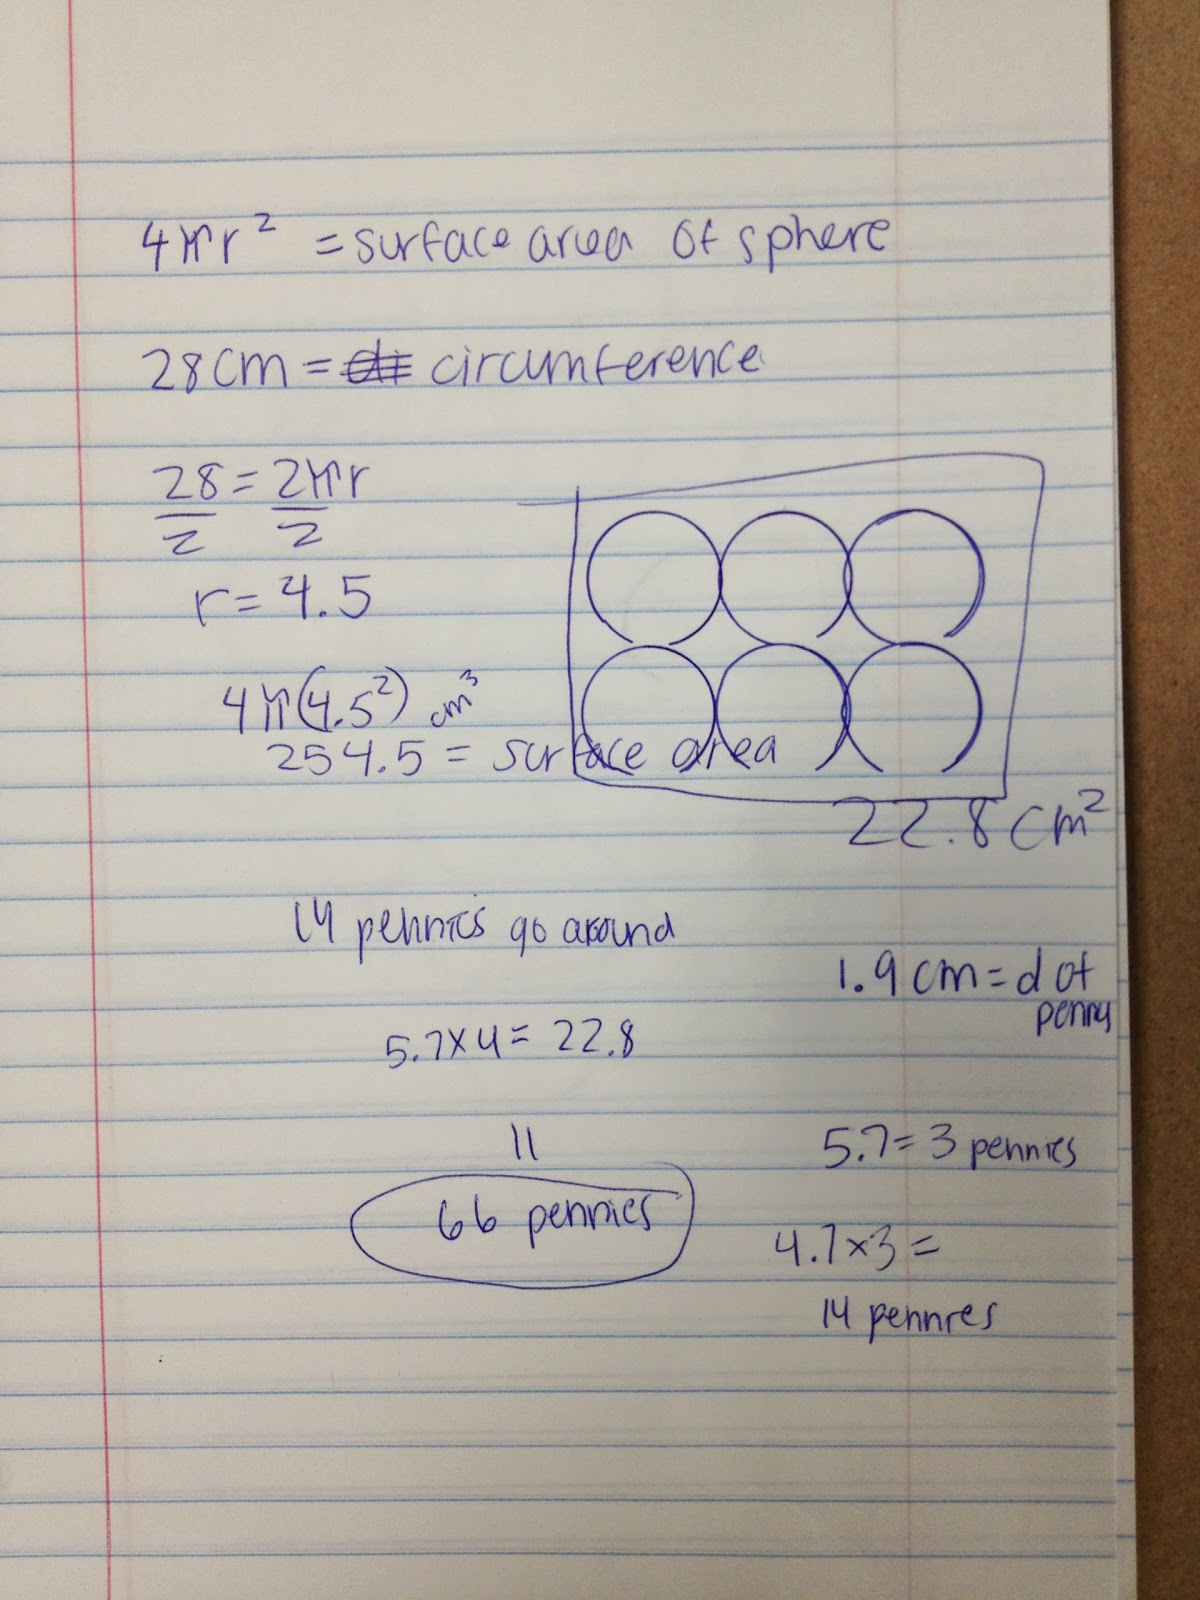 4πr² = surface area of sphere
28cm = circumference
28 = 2πr
2 2
r = 4.5
4π(4.5²) cm³
254.5 = surface area
22.8 cm²
14 pennies go around
1.9 cm = d of
penny
5.7x4 = 22.8
11
5.7 = 3 pennies
66 pennies
4.7x3 =
14 pennies